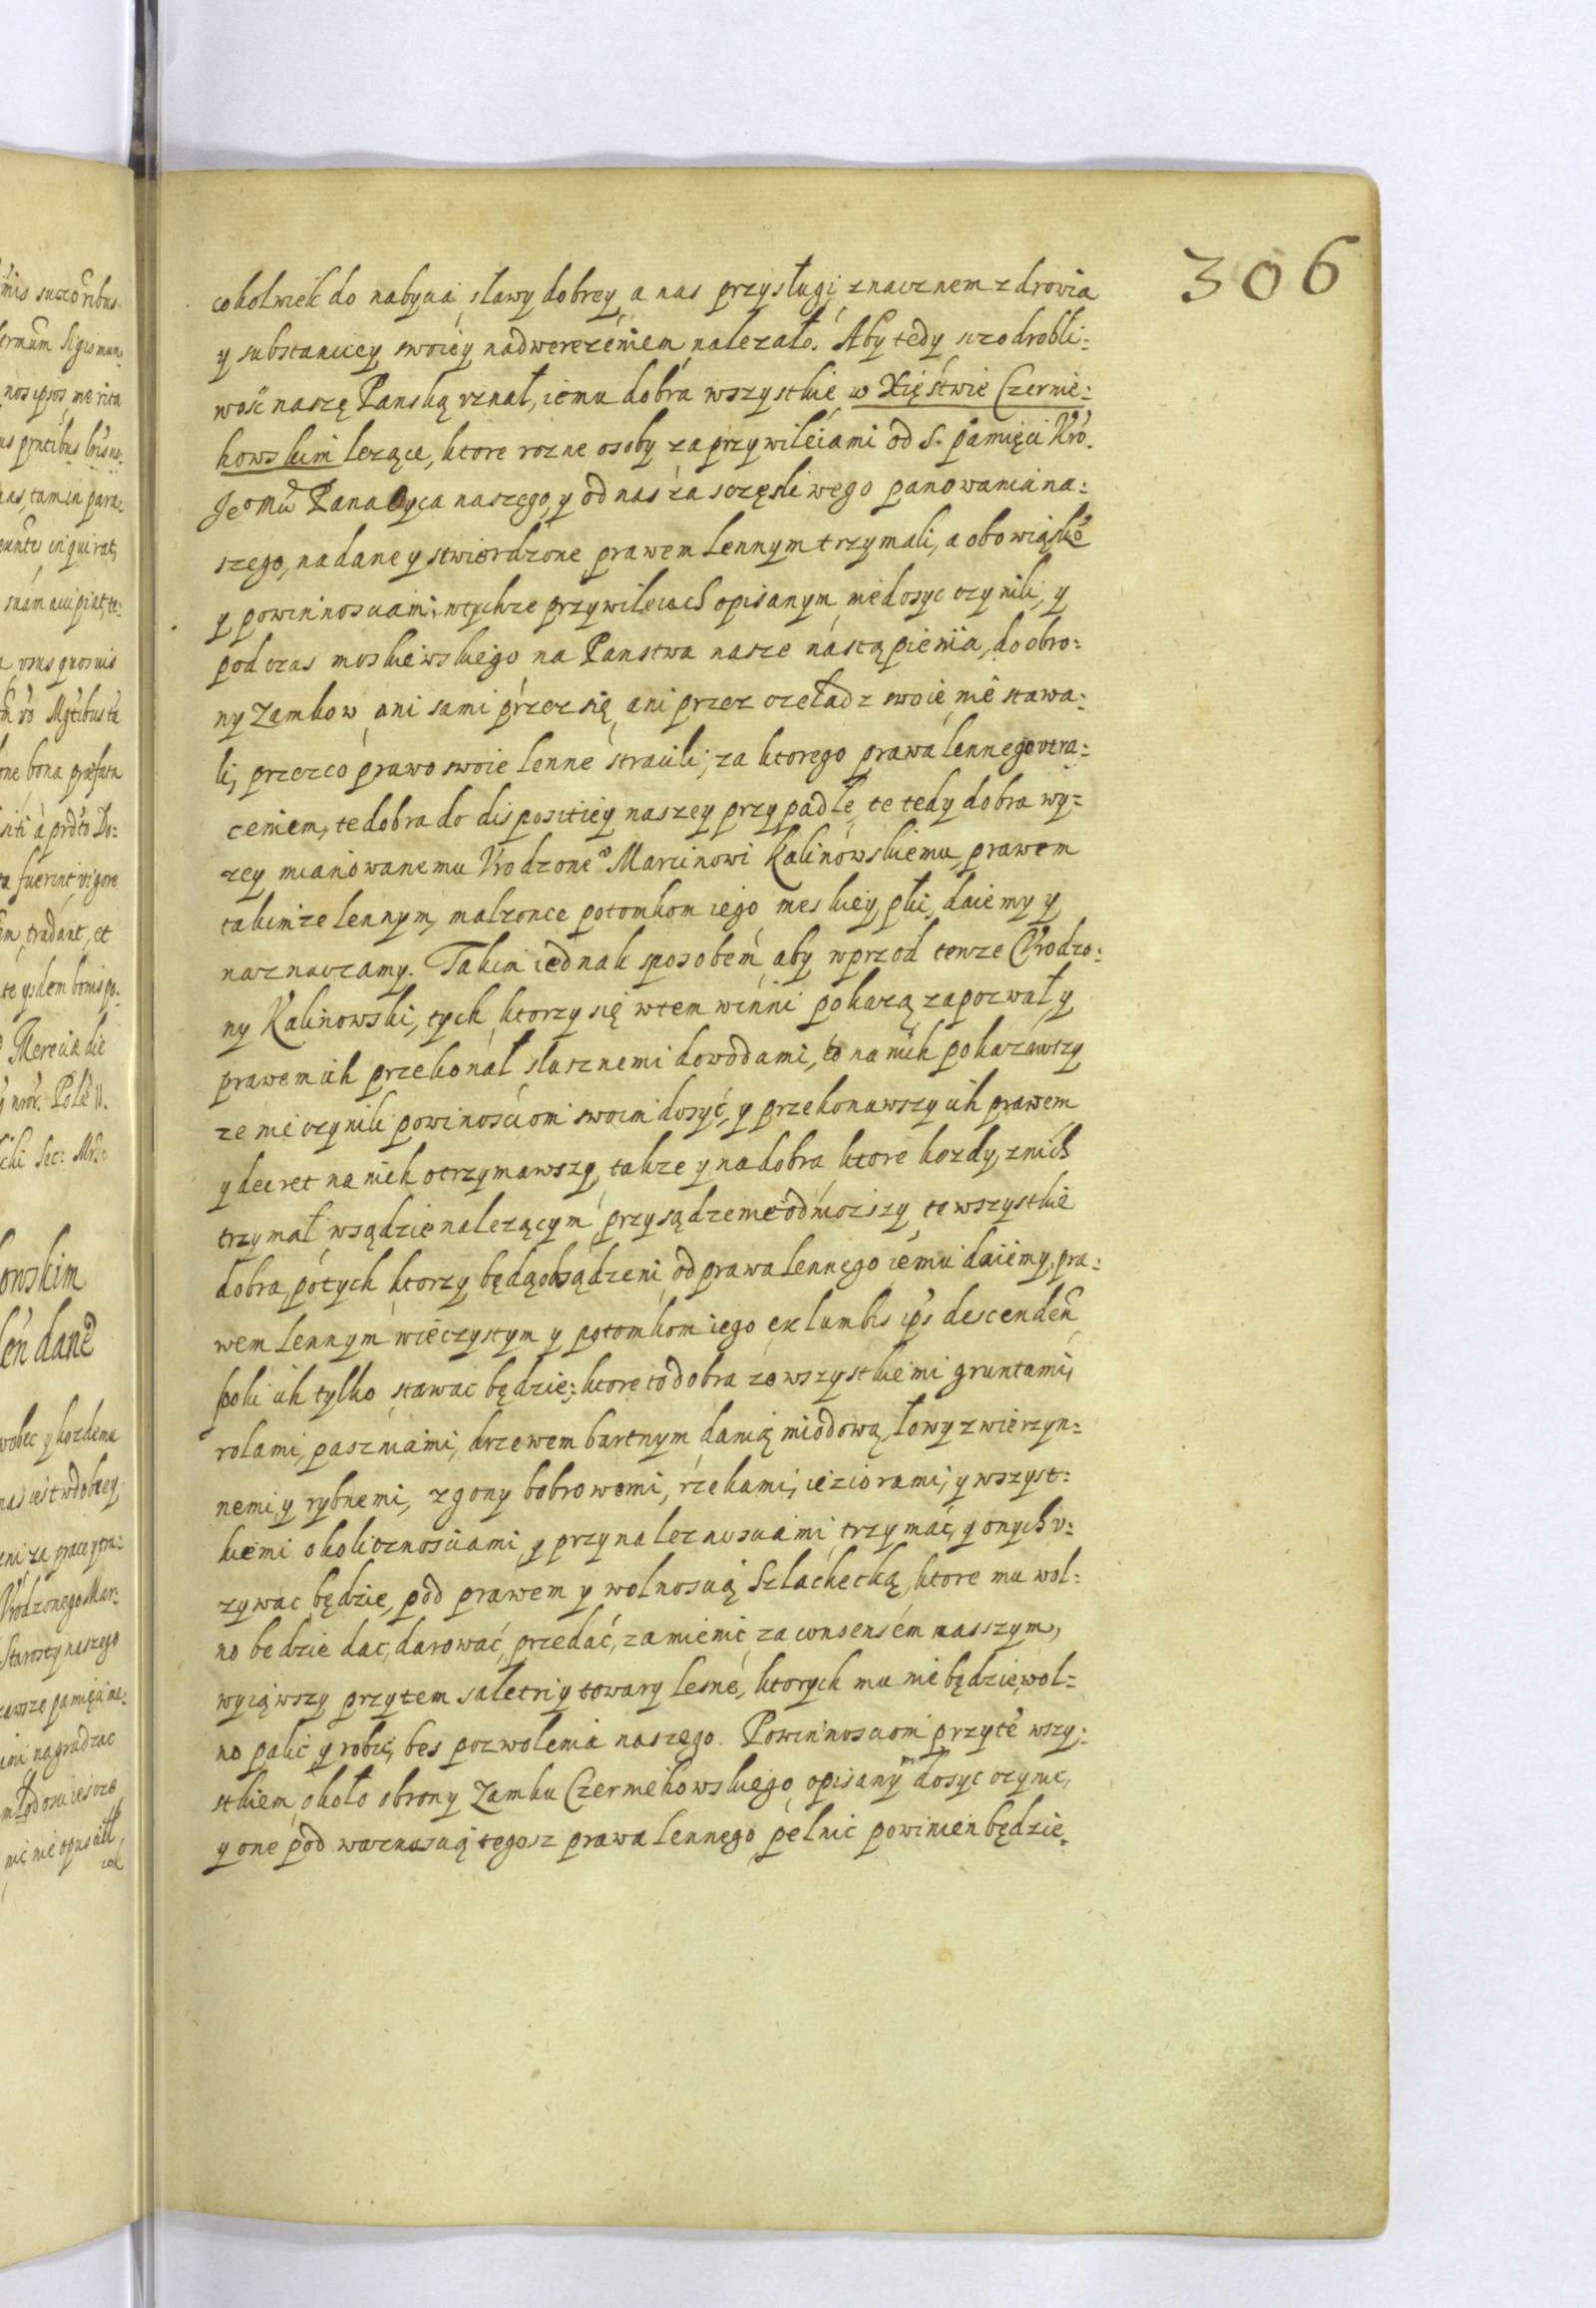 306
cokolwiek do nabycia sławy dobrey a nas przysługi znacznem zdrowia
y substantiey swoiey nadwerezeniem nalezało. Aby tedy szczodrobli:
wosć naszę Panską vznał, iemu dobra wszystkie w Xięstwie Czernie:
howskim lezące, ktore rozne osoby za przywileiami od S. pamięci Kro.
Jeo Mci Pana Oyca naszego, y od nas za szczęsliwego panowania na:
szego, nadane y stwierdzone prawem Lennym trzymali, a obowiąsko
y powinnosciami w tychze przywileiach opisanym niedosyc czynili, y
podczas moskiewskiego na Panstwa nasze nastąpienia, do obro:
ny Zamkow ani sami przez się ani przez czeladz swoię nie stawa:
li, przez co prawo swoie lenne stracili; za ktorego prawa lennego vtra:
ceniem, te dobra do dispositiey naszey przypadłe, te tedy dobra wy:
zey mianowanemu Vrodzoneo Marcinowi Kalinowskiemu prawem
takimze lennym, malzonce potomkom iego meskiey płci, daiemy y
naznaczamy. Takim iednak sposobem aby wprzod tenze Vrodzo:
ny Kalinowski, tych ktorzy się wtem winni pokazą zapozwał y
prawem ich przekonał slusznemi dowodami, to na nich pokazawszy
ze nie czynili powinosciom swoim dosyć, y przekonawszy ich prawem
y decret na nich otrzymawszy, takze y na dobra ktore kozdy z nich
trzymał w sądzie nalezącym przysądzenie odniozszy te wszystkie
dobra, po tych ktorzy będą odsądzeni od prawa Lennego iemu daiemy, pra:
wem Lennym wieczystym y potomkom iego ex lumbis ips descenden
poki ich tylko stawac będzie; ktore to dobra ze wszystkiemi gruntami,
rolami, pasznicami, drzewem bartnym danią miodową, łowy zwierzyn:
nemi, y rybnemi, zgony bobrowemi, rzekami, ieziorami, y wszyst:
kiemi okolicznosciami, y przynaleznosciami trzymać, y onych v:
zywac będzie, pod prawem y wolnoscią Szlachecką, ktore mu wol:
no bedzie dac, darować, przedać, zamienic za consensem naszym,
wyiąwszy przytem saletri y towary lesne, ktorych mu nie będzie wol:
no palic y robic, bes pozwolenia naszego. Powinnosciom przyte wszy:
stkiem około obrony Zamku Czerniehowskiego opisanym dosyc czynic,
y one pod waznoscią tegosz prawa lennego pełnic powinien będzie.